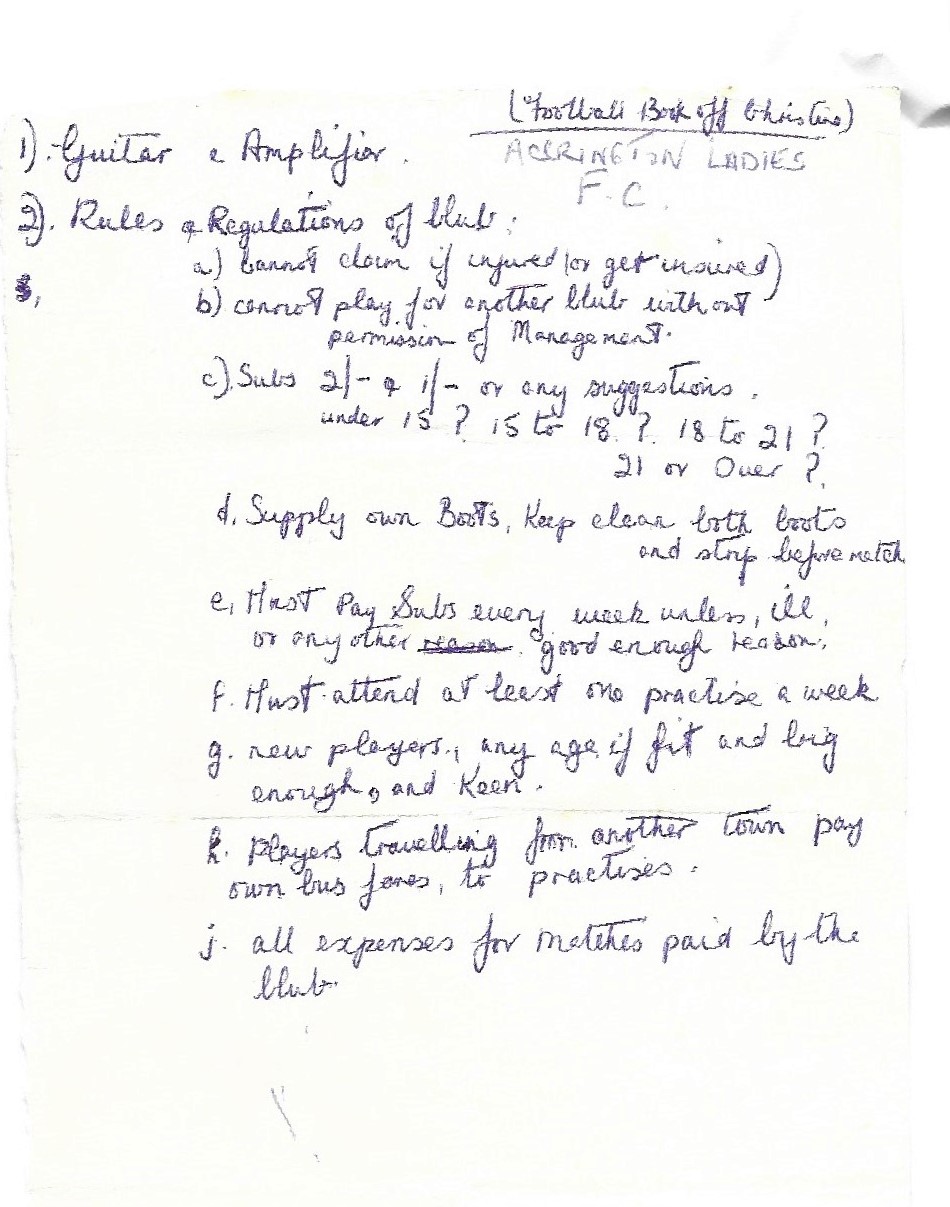 (Football Book off Christine)
1). Guitar & Amplifier.
ACCRINGTON LADIES
F.C.
2). Rules & Regulations of Club:
a) Cannot claim if injured (or get insured)
3,
b) cannot play for another Club without
permission of Management.
c). Subs 2/- & 1/- or any suggestions.
under 15 ? 15 to 18. ? 18 to 21 ?
21 or Over ?
d. Supply own Boots, Keep clean both boots
and strip before match
e, Must Pay Subs every week unless, ill,
or any other reason. good enough reason.
f. Must attend at least one practise a week
g. new players., any age if fit and big
enough, and Keen.
h. Players travelling from another town pay
own bus fares, to practises.
j. all expenses for matches paid by the
Club.